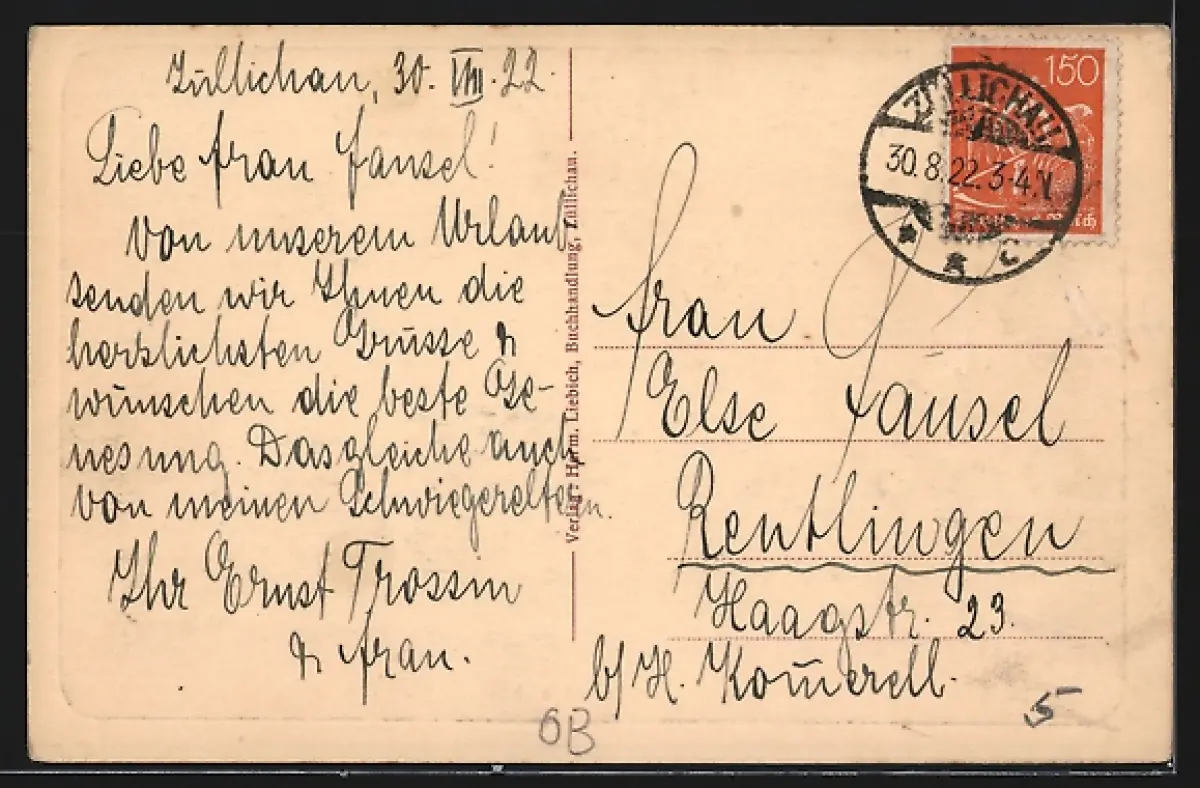 Züllichau, 30. VIII. 22.
Liebe Frau Fausel!
Von unserem Urlaub
senden wir Ihnen die
herzlichsten Grüsse &
wünschen die beste Ge-
nesung. Dasgleiche auch
von meinen Schwiegereltern.
Ihr Ernst Trossin
& Frau.
Verlag: Herm. Liebich, Buchhandlung, Züllichau.
150
ZÜLLICHAU
30.8.22.3-4.N.
* a c
Frau
Else Fausel
Reutlingen
Haagstr. 23.
b/ H. Kom̅erell.
5
OB